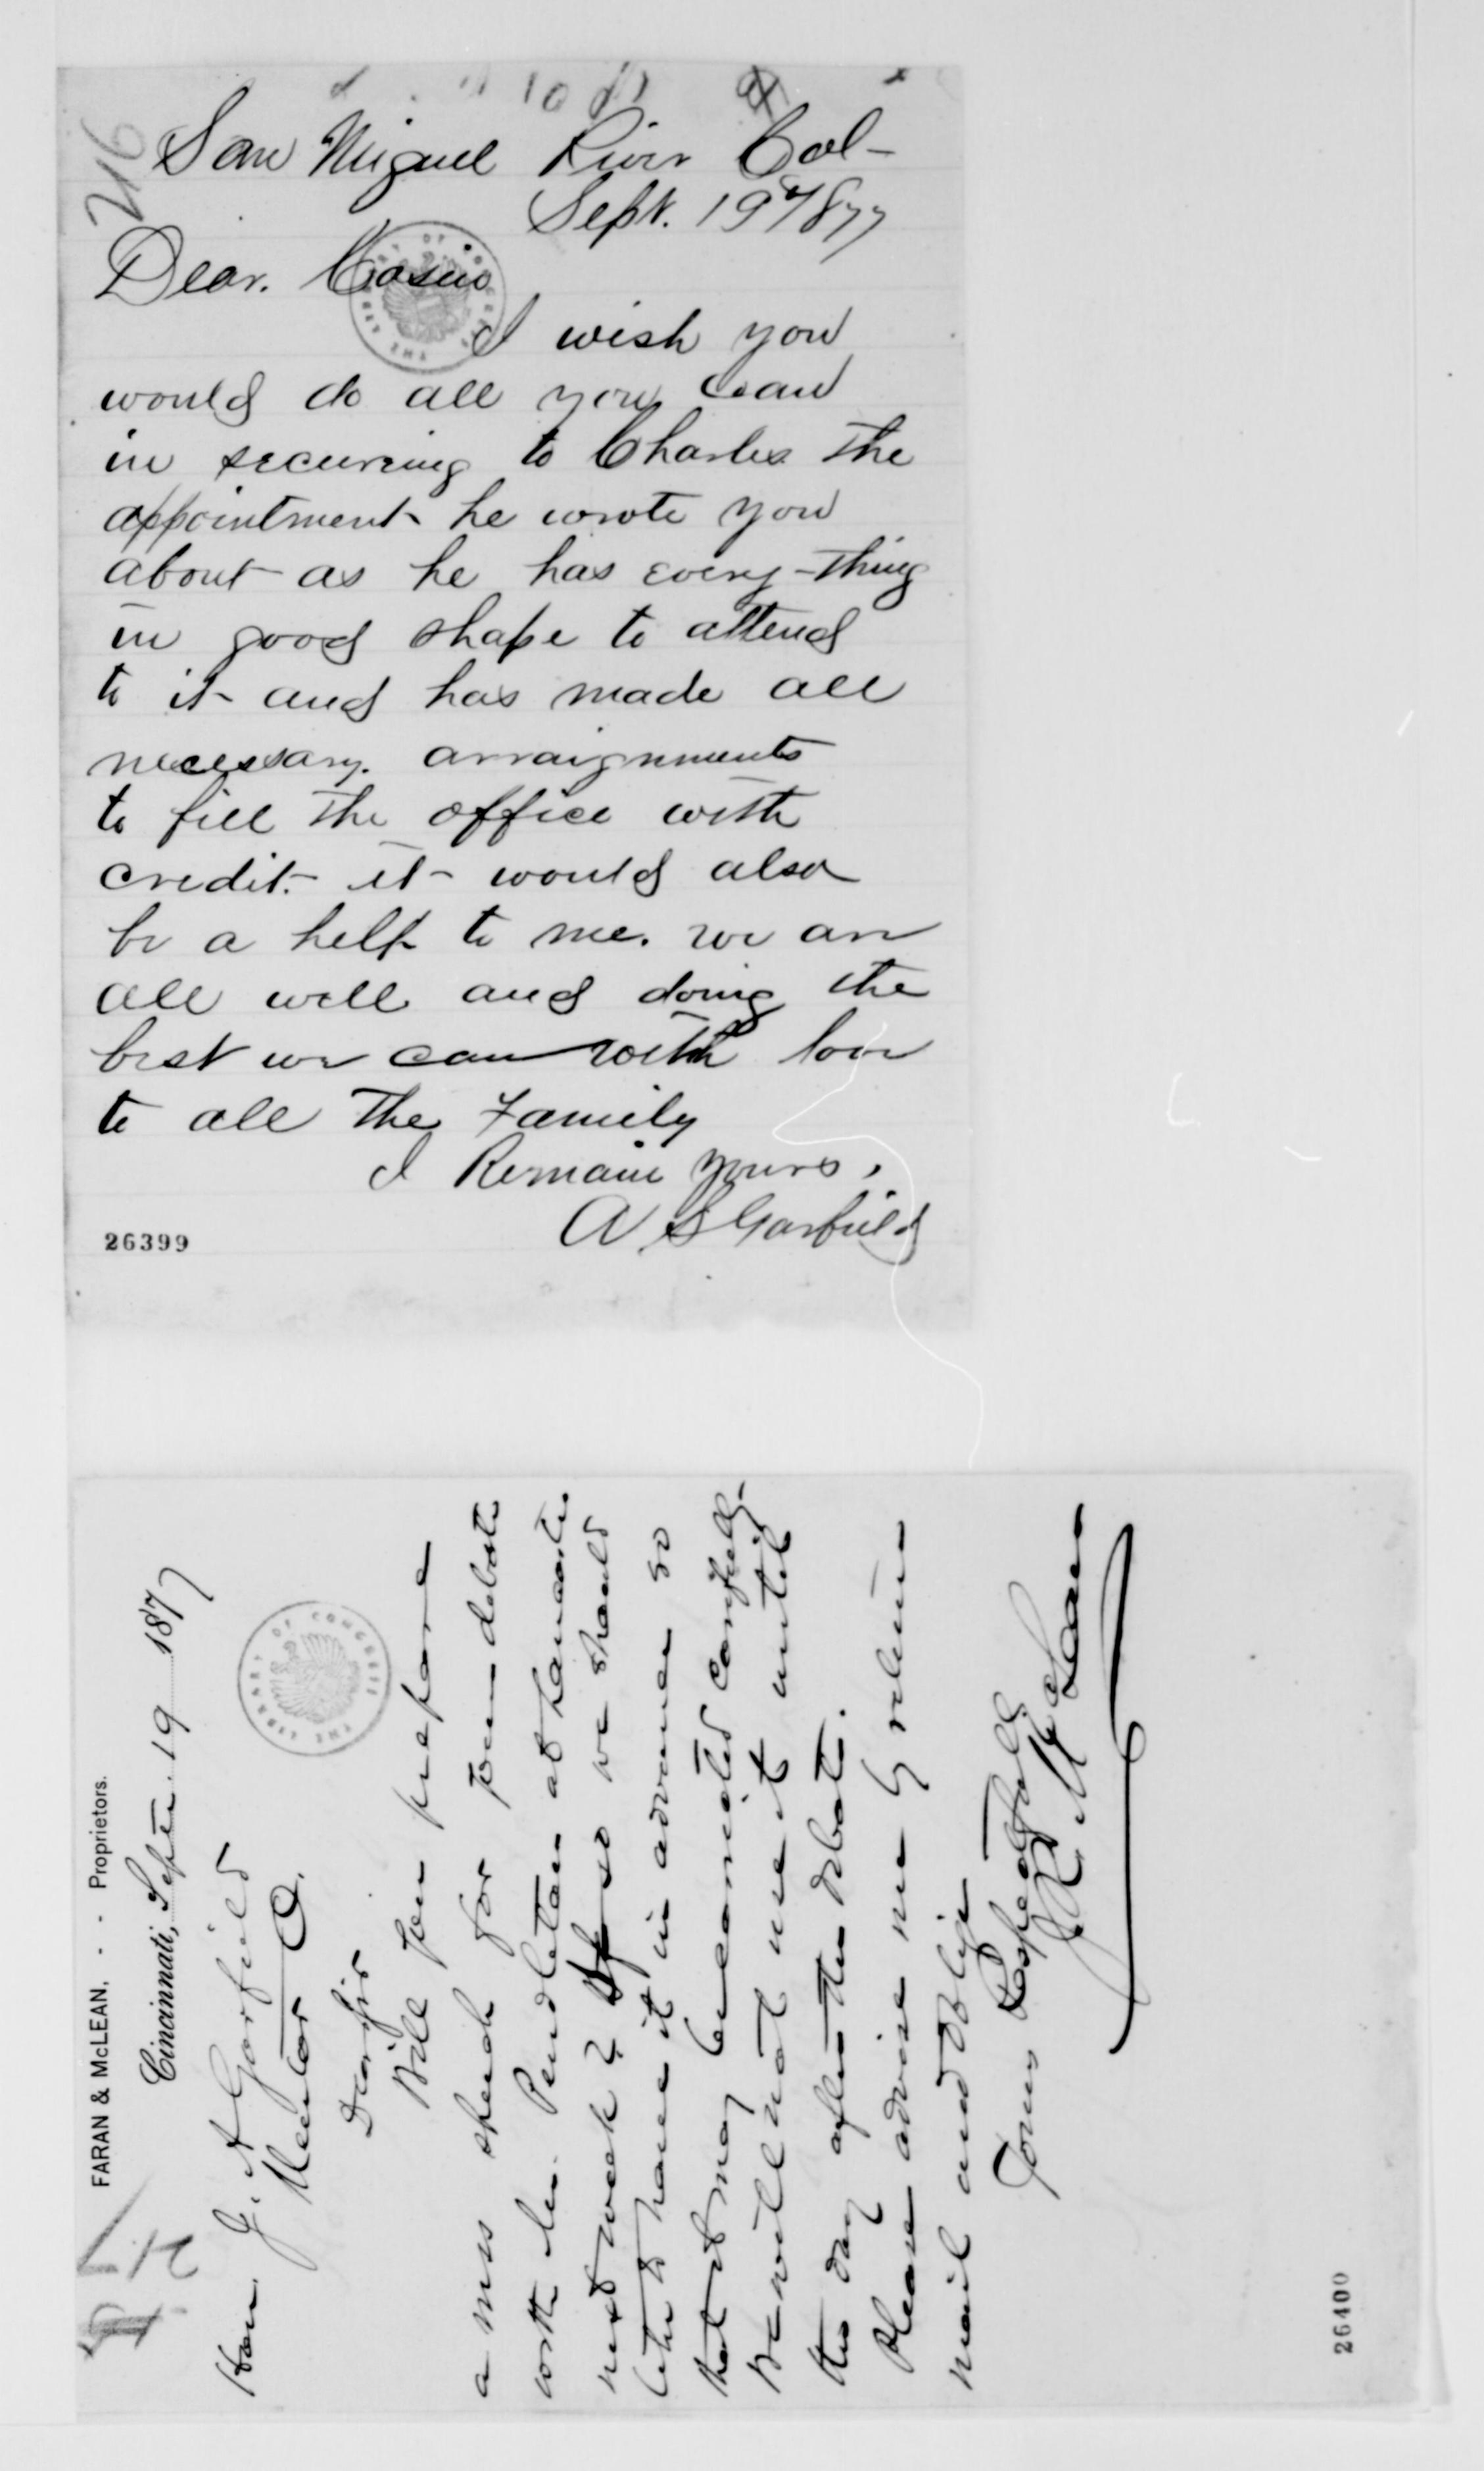 San Miguel River Col-
Sept. 19th 1877
Dear. Cosin
I wish you
would do all you can
in securing to Charles the
appointment he wrote you
about as he has every-thing
in good shape to attend
to it and has made all
necessary. arraignments
to fill the office with
credit. it would also
be a help to me. we are
all well and doing the
best we can with love
to all the Family
I Remain yours,
A S Garfield
26399
THE LIBRARY OF CONGRESS
FARAN & McLEAN, - - Proprietors.
Cincinnati, Septr 19 1877
Hon. J. A Garfield
Mentor O.
Dear Sir
Will you prepare
a mss speech for your debate
with Mr. Pendleton at Lancaster
next week? If so we should
like to have it in advance so
that it may be corrected carefully.
We will not use it until
the day after the debate.
Please advise me by return
mail and oblige
Yours Respectfully
J R McLean
26400